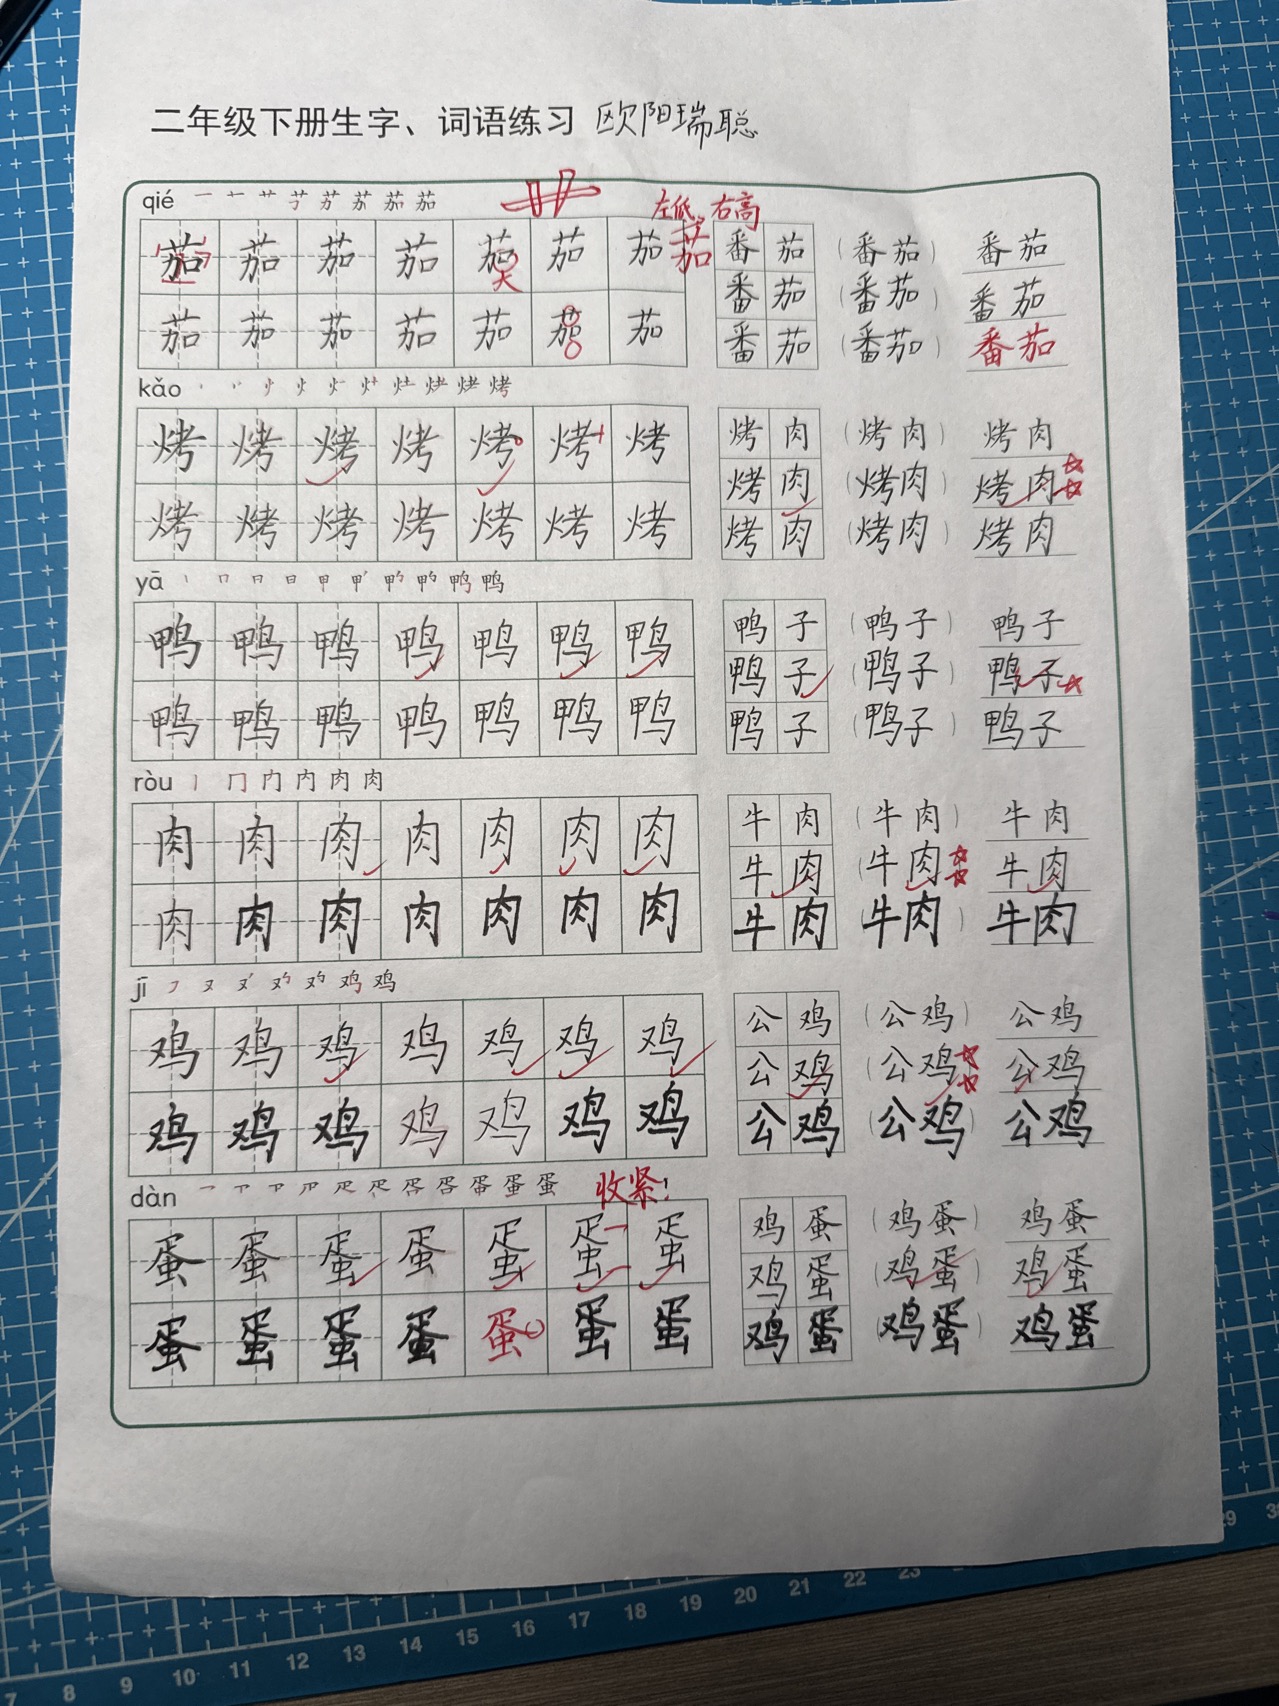 二年级下册生字、词语练习 欧阳瑞聪
qié
左低、右高
茄 茄 茄 茄 茄 茄 茄 茄 番 茄 (番茄) 番茄
大
番 茄 (番茄) 番茄
茄 茄 茄 茄 茄 茄 茄 番 茄 (番茄) 番茄
kǎo
烤 烤 烤 烤 烤 烤 烤 烤 肉 (烤肉) 烤肉
烤 肉 (烤肉) 烤肉
烤 烤 烤 烤 烤 烤 烤 烤 肉 (烤肉) 烤肉
yā
鸭 鸭 鸭 鸭 鸭 鸭 鸭 鸭 子 (鸭子) 鸭子
鸭 子 (鸭子) 鸭子
鸭 鸭 鸭 鸭 鸭 鸭 鸭 鸭 子 (鸭子) 鸭子
ròu
肉 肉 肉 肉 肉 肉 肉 牛 肉 (牛肉) 牛肉
牛 肉 (牛肉) 牛肉
肉 肉 肉 肉 肉 肉 肉 牛 肉 (牛肉) 牛肉
jī
鸡 鸡 鸡 鸡 鸡 鸡 鸡 公 鸡 (公鸡) 公鸡
公 鸡 (公鸡) 公鸡
鸡 鸡 鸡 鸡 鸡 鸡 鸡 公 鸡 (公鸡) 公鸡
dàn
收紧!
蛋 蛋 蛋 蛋 蛋 蛋 蛋 鸡 蛋 (鸡蛋) 鸡蛋
鸡 蛋 (鸡蛋) 鸡蛋
蛋 蛋 蛋 蛋 蛋 蛋 蛋 鸡 蛋 (鸡蛋) 鸡蛋
7 8 9 10 11 12 13 14 15 16 17 18 19 20 21 22 23 29